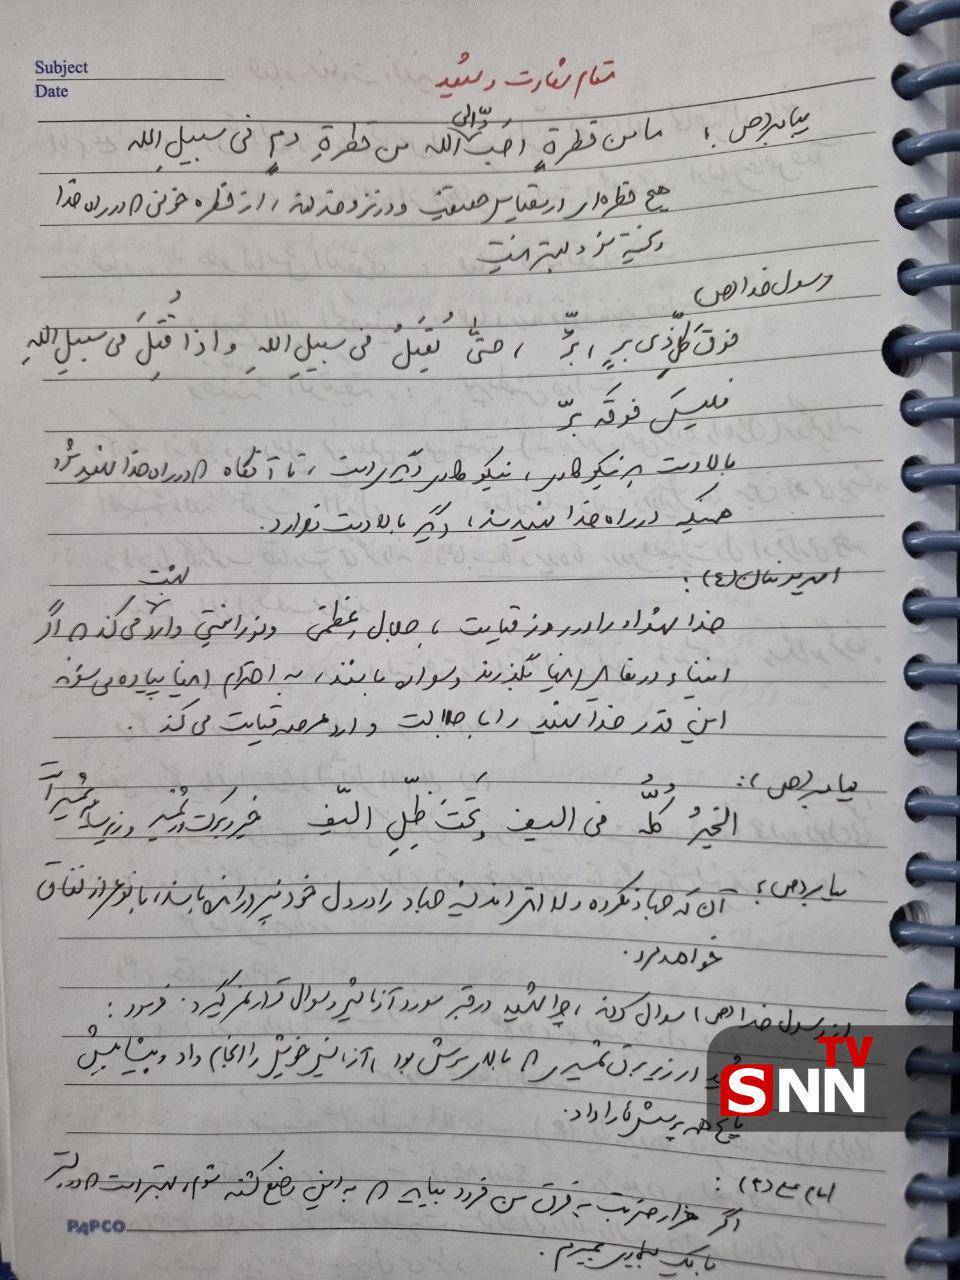 Subject
Date
مقام شهادت و شهید
پیامبر(ص): ما من قطرةٍ اَحَبَّ الی الله من قطرةِ دمٍ فی سبیلِ الله
هیچ قطره‌ای در مقیاس حقیقت و در نزد خداوند، از قطره خونی که در راه خدا
ریخته شود بهتر نیست
رسول خدا(ص)
فوق کلِّ ذی برٍ، برٌّ، حتّی یُقتَلُ فی سبیلِ اللهِ و اذا قُتِلَ فی سبیلِ اللهِ
فلیسَ فوقَه برّ
بالادست هر نیکوکاری، نیکوکاری دیگری است، تا آنگاه که در راه خدا شهید شود
همینکه در راه خدا شهید شد، دیگر بالادست ندارد.
امیرمومنان(ع):
خدا شهدا را در روز قیامت با جلال و عظمتی و نورانیتی وارد بهشت می‌کند که اگر
انبیاء در مقابل اینها بگذرند و سواره باشند، به احترام اینها پیاده می‌شوند
این قدر خدا شهید را با جلالت وارد عرصه قیامت می‌کند.
پیامبر(ص):
الخیرُ کُلُّه فی السیف و تَحتَ ظِلِّ السَّیف خیر و برکت در شمشیر و زیر سایه شمشیر است
پیامبر(ص):
آن که جهاد نکرده و لااقل اندیشه جهاد را در دل خود نپرورانده باشد، با نوعی از نفاق
خواهد مرد.
از رسول خدا(ص) سوال کردند، چرا شهید در قبر مورد آزمایش و سوال قرار نمی‌گیرد. فرمود:
شهید در زیر برق شمشیری که بالای سرش بود، آزمایش خویش را انجام داد و پیشاپیش
پاسخ همه پرسش‌ها را داد.
امام علی(ع):
اگر هزار ضربت به فرق من فرود بیاید که به این وضع کشته شوم، بهتر است که در بستر
با یک بیماری بمیرم.
SNN TV
PAPCO